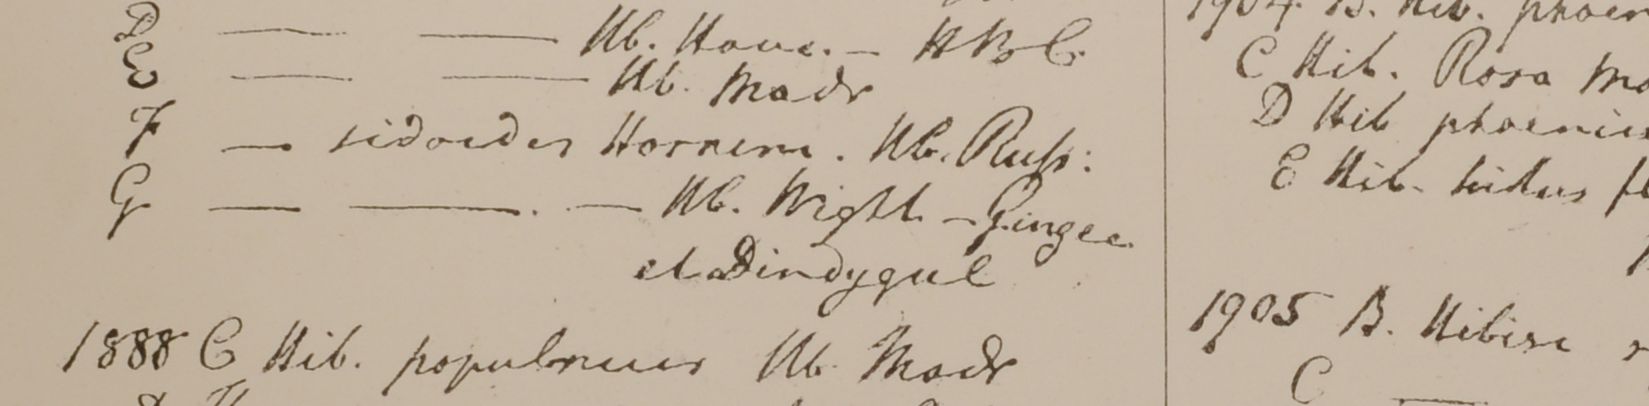 D — — Hb. Ham. — HBC
E — — Hb. Madr
F — sidoides Hornem. Hb. Russ:
G — — . — Hb. Wight. — Gingee
et Dindygul
1888 C Hib. populneus Hb. Madr
1904. B. Hib. phoen
C Hib. Rosa Ma
D Hib phoenic
E Hib. hirtus fl
1905 B. Hibisc
C —